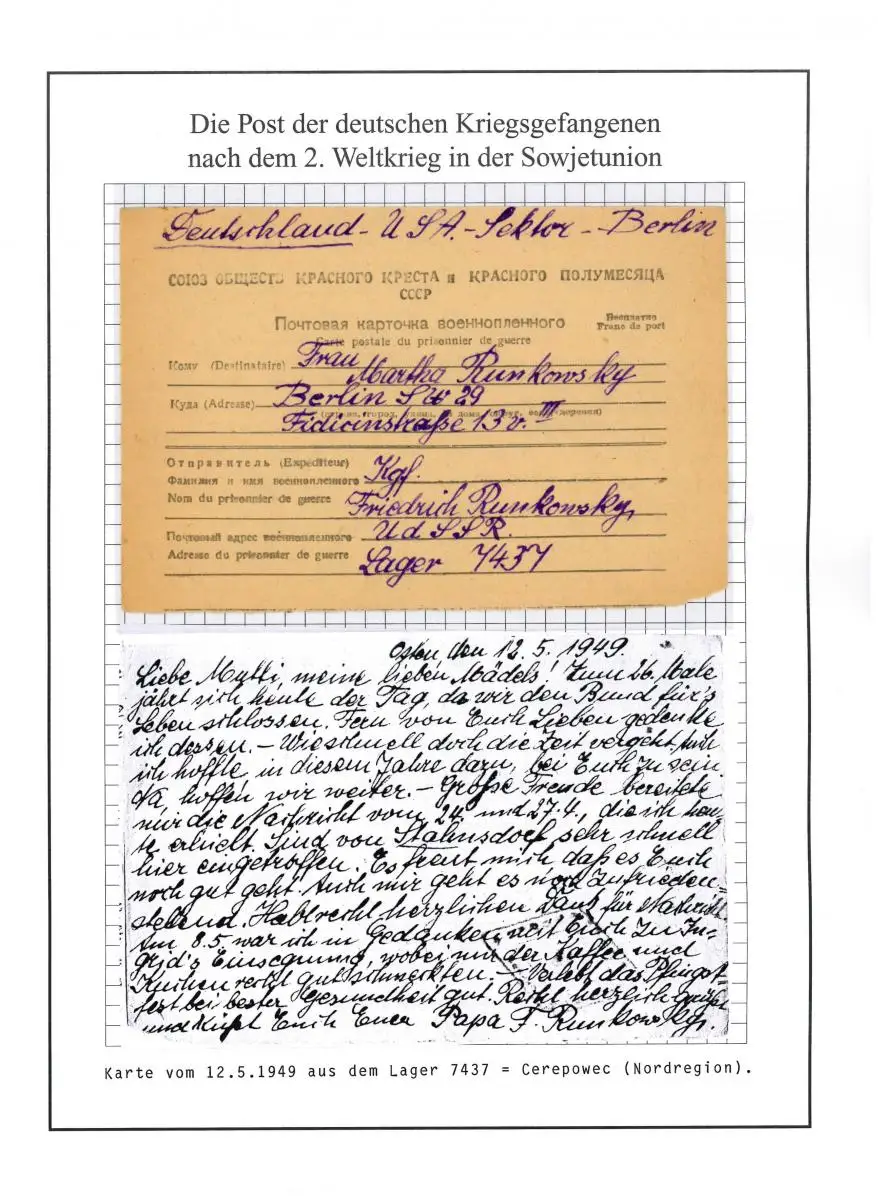 Die Post der deutschen Kriegsgefangenen
nach dem 2. Weltkrieg in der Sowjetunion
Deutschland - USA.-Sektor - Berlin
СОЮЗ ОБЩЕСТВ КРАСНОГО КРЕСТА и КРАСНОГО ПОЛУМЕСЯЦА
СССР
Почтовая карточка военнопленного
Бесплатно
Franc de port
Carte postale du prisonnier de guerre
Кому (Destinataire) Frau
Martha Runkowsky
Куда (Adresse) Berlin SW 29
Fidicinstraße 13 v. III
Отправитель (Expéditeur)
Фамилия и имя военнопленного Kgf.
Nom du prisonnier de guerre Friedrich Runkowsky,
Почтовый адрес военнопленного UdSSR.
Adresse du prisonnier de guerre Lager 7437
Osten den 12.5.1949.
Liebe Mutti, meine lieben Mädels! Zum 26. Male
jährt sich heute der Tag, da wir den Bund für's
Leben schlossen. Fern von Euch Lieben gedenke
ich dessen. - Wie schnell doch die Zeit vergeht. Auch
ich hoffte in diesem Jahre dazu, bei Euch zu sein.
Na, hoffen wir weiter. - Große Freude bereitete
mir die Nachricht vom 24. und 27.4., die ich heu-
te erhielt. Sind von Stahnsdorf sehr schnell
hier eingetroffen. Es freut mich daß es Euch
noch gut geht. Auch mir geht es noch zufrieden-
stellend. Habt recht herzlichen Dank für Nachricht
Am 8.5. war ich in Gedanken mit Euch zu In-
grid's Einsegnung, wobei mir der Kaffee und
Kuchen recht gut schmeckten. - Verlebt das Pfingst-
fest bei bester Gesundheit gut. Recht herzlich grüßt
und küßt Euch Euer Papa F. Runkowsky.
Karte vom 12.5.1949 aus dem Lager 7437 = Cerepowec (Nordregion).